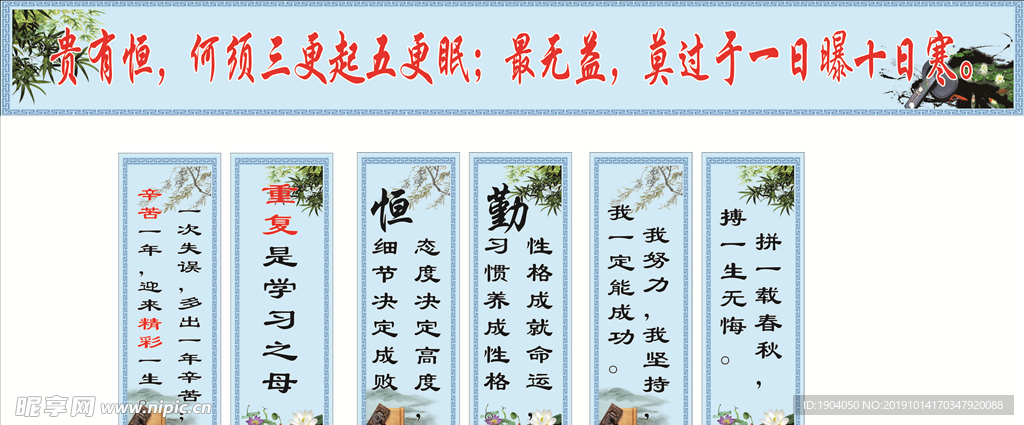 贵有恒，何须三更起五更眠；最无益，莫过于一日曝十日寒。
一次失误，多出一年辛苦，
辛苦一年，迎来精彩一生
重复是学习之母
恒
态度决定高度，
细节决定成败
勤
性格成就命运，
习惯养成性格。
我努力，我坚持，
我一定能成功。
拼一载春秋，
搏一生无悔。
昵享网 www.nipic.cn
ID:1904050 NO:20191014170347920088